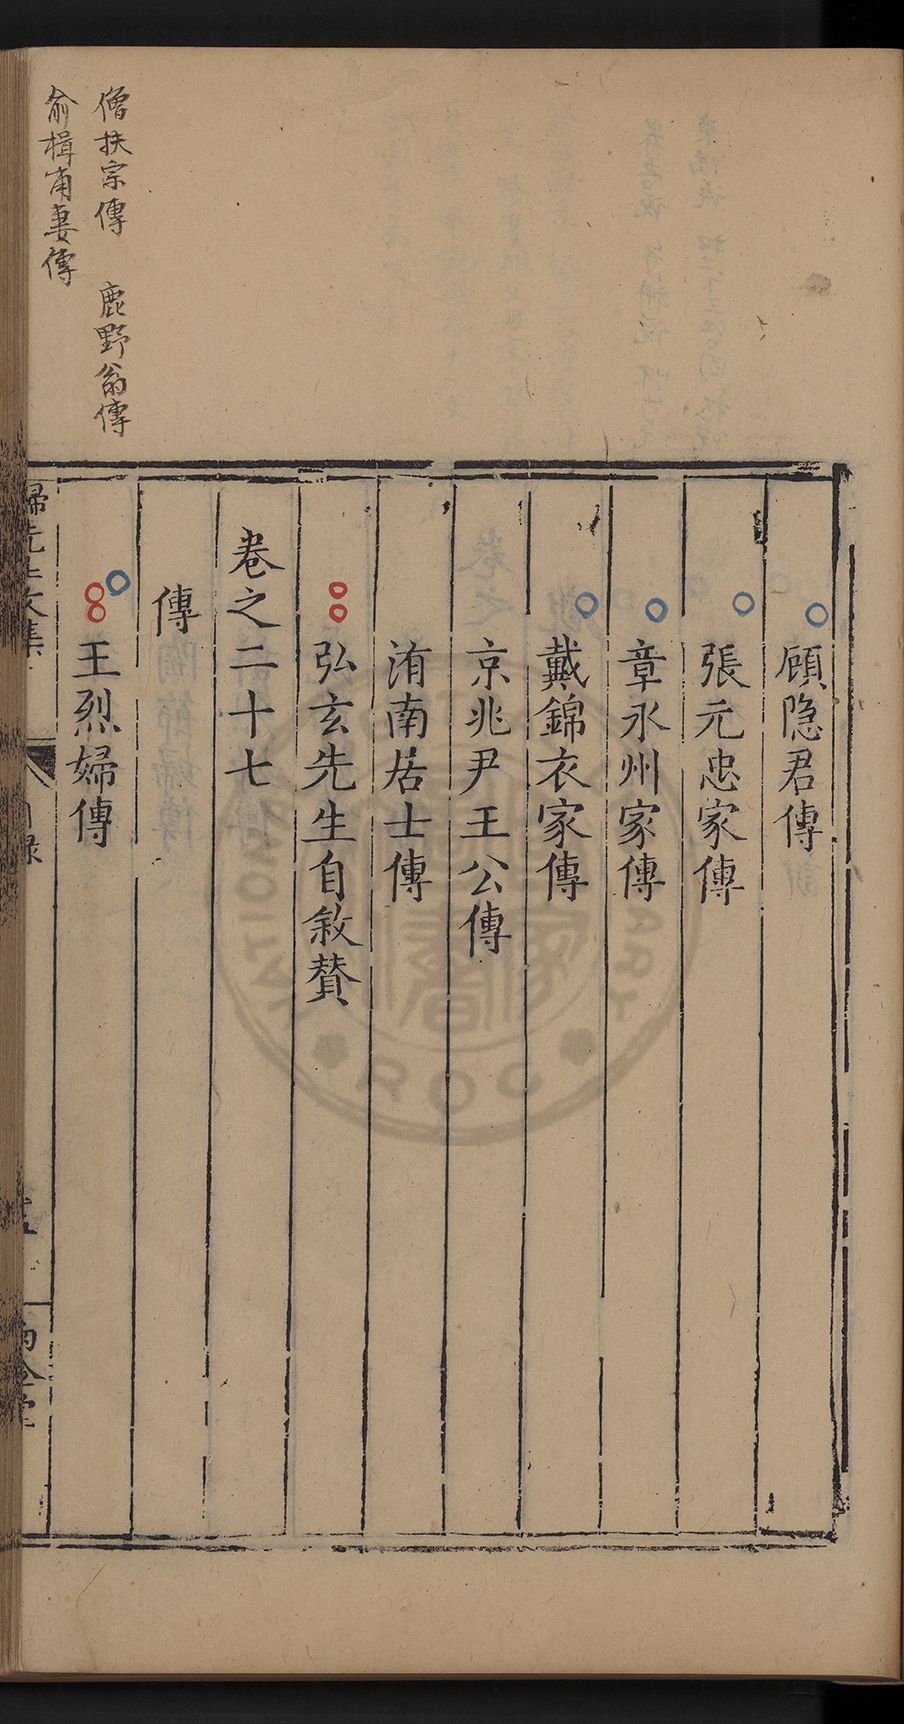 僧扶宗傳 鹿野翁傳
俞楫甫妻傳
顧隐君傳
張元忠家傳
章永州家傳
戴錦衣家傳
京兆尹王公傳
洧南居士傳
弘玄先生自敘贊
卷之二十七
傳
王烈婦傳
歸先生文集
目錄
ROC